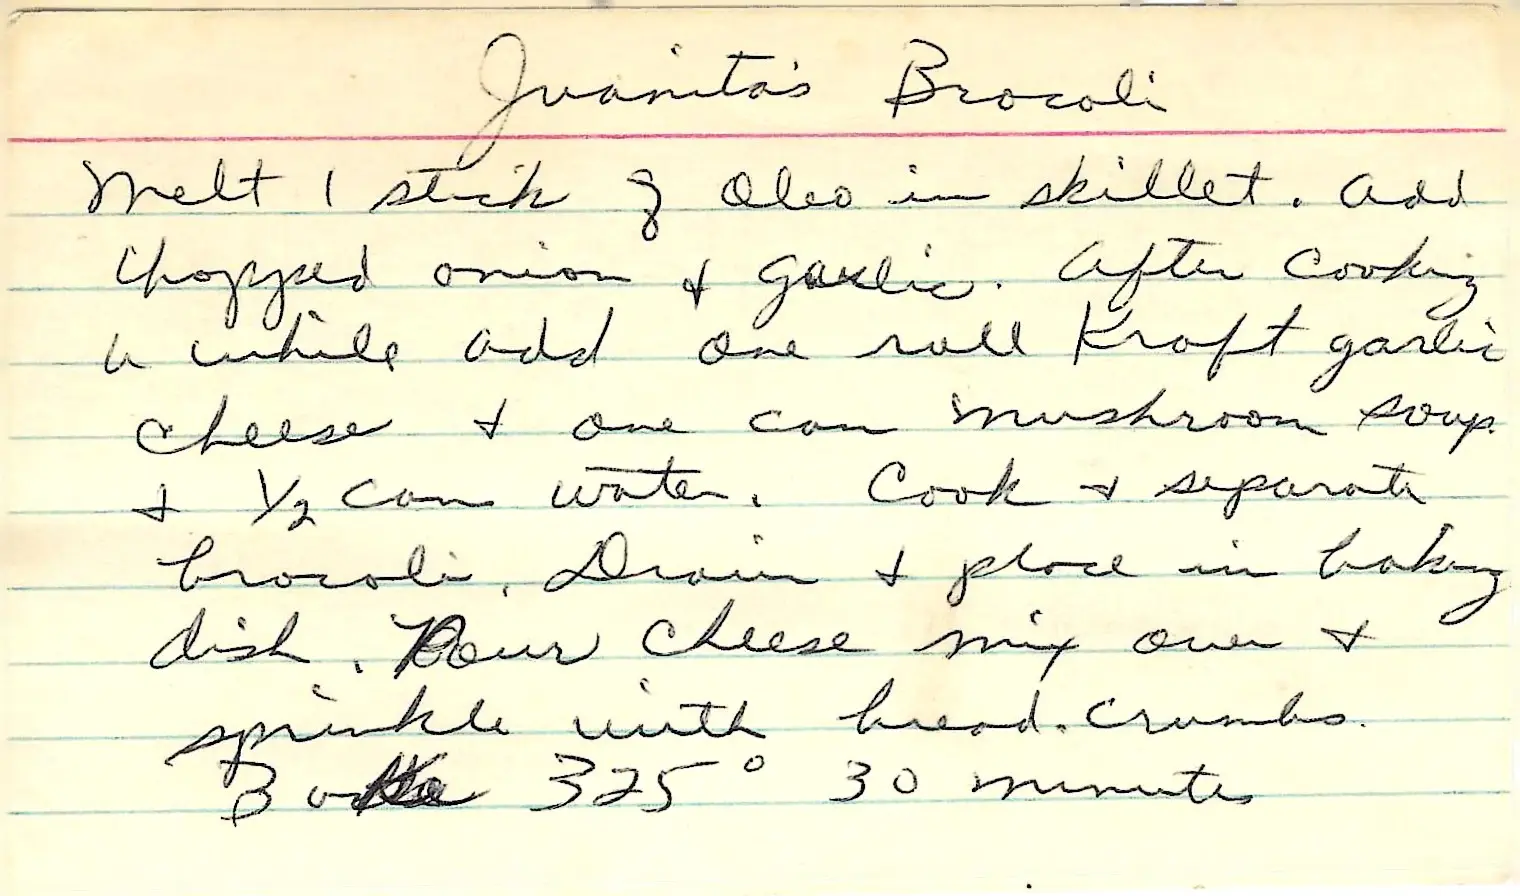 Juanita's Brocoli
Melt 1 stick of Oleo in skillet. Add
chopped onion & garlic. After cooking
a while add one roll Kraft garlic
cheese & one can mushroom soup.
& 1/2 can water. Cook & separate
brocoli. Drain & place in baking
dish. Pour cheese mix over &
sprinkle with bread crumbs.
Bake 325° 30 minutes